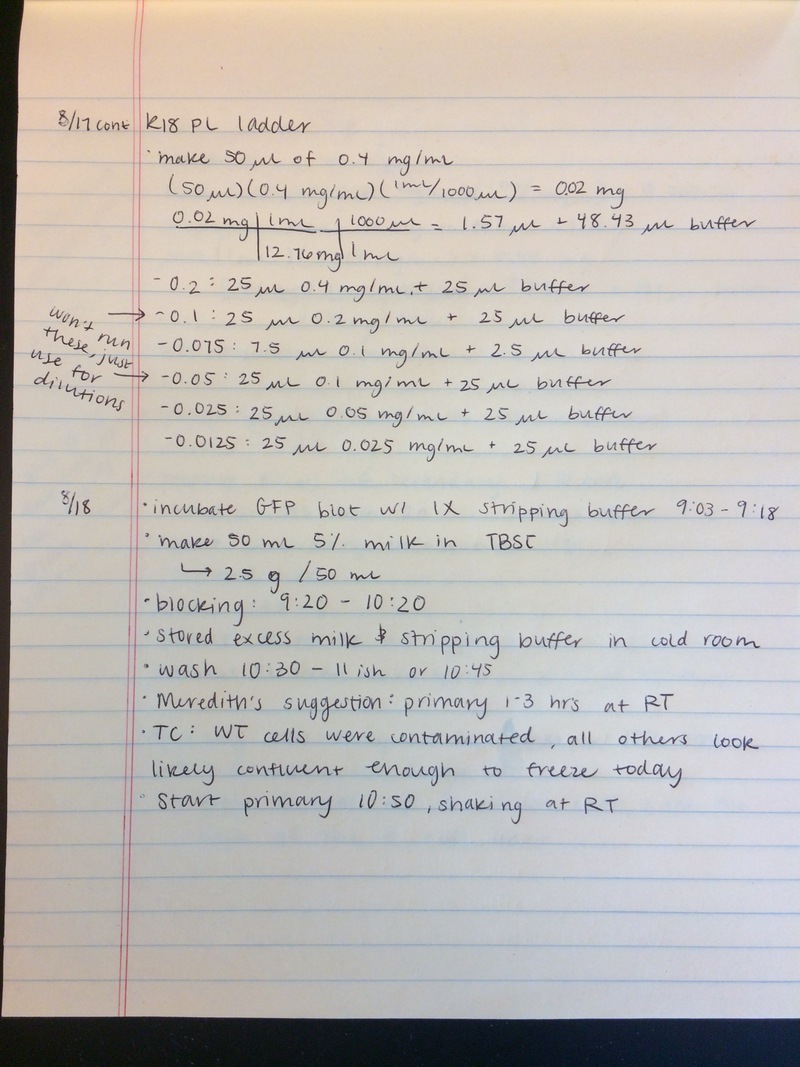 8/17 cont K18 PL ladder
· make 50 µl of 0.4 mg/mL
(50 µl)(0.4 mg/mL)(1mL/1000µL) = 0.02 mg
0.02 mg | 1mL | 1000 µL = 1.57 µl + 48.43 µl buffer
12.76mg | 1mL
- 0.2 : 25 µl 0.4 mg/mL + 25 µl buffer
won't run these, just use for dilutions
→ - 0.1 : 25 µl 0.2 mg/mL + 25 µl buffer
- 0.075 : 7.5 µl 0.1 mg/mL + 2.5 µl buffer
→ - 0.05 : 25 µL 0.1 mg/mL + 25 µL buffer
- 0.025 : 25 µL 0.05 mg/mL + 25 µl buffer
- 0.0125 : 25 µl 0.025 mg/mL + 25 µL buffer
8/18 · incubate GFP blot w/ 1X stripping buffer 9:03 - 9:18
· make 50 mL 5% milk in TBST
↳ 2.5 g / 50 mL
· blocking: 9:20 - 10:20
· stored excess milk & stripping buffer in cold room
· wash 10:30 - 11 ish or 10:45
· Meredith's suggestion: primary 1-3 hrs at RT
· TC: WT cells were contaminated, all others look
likely confluent enough to freeze today
· Start primary 10:50, shaking at RT